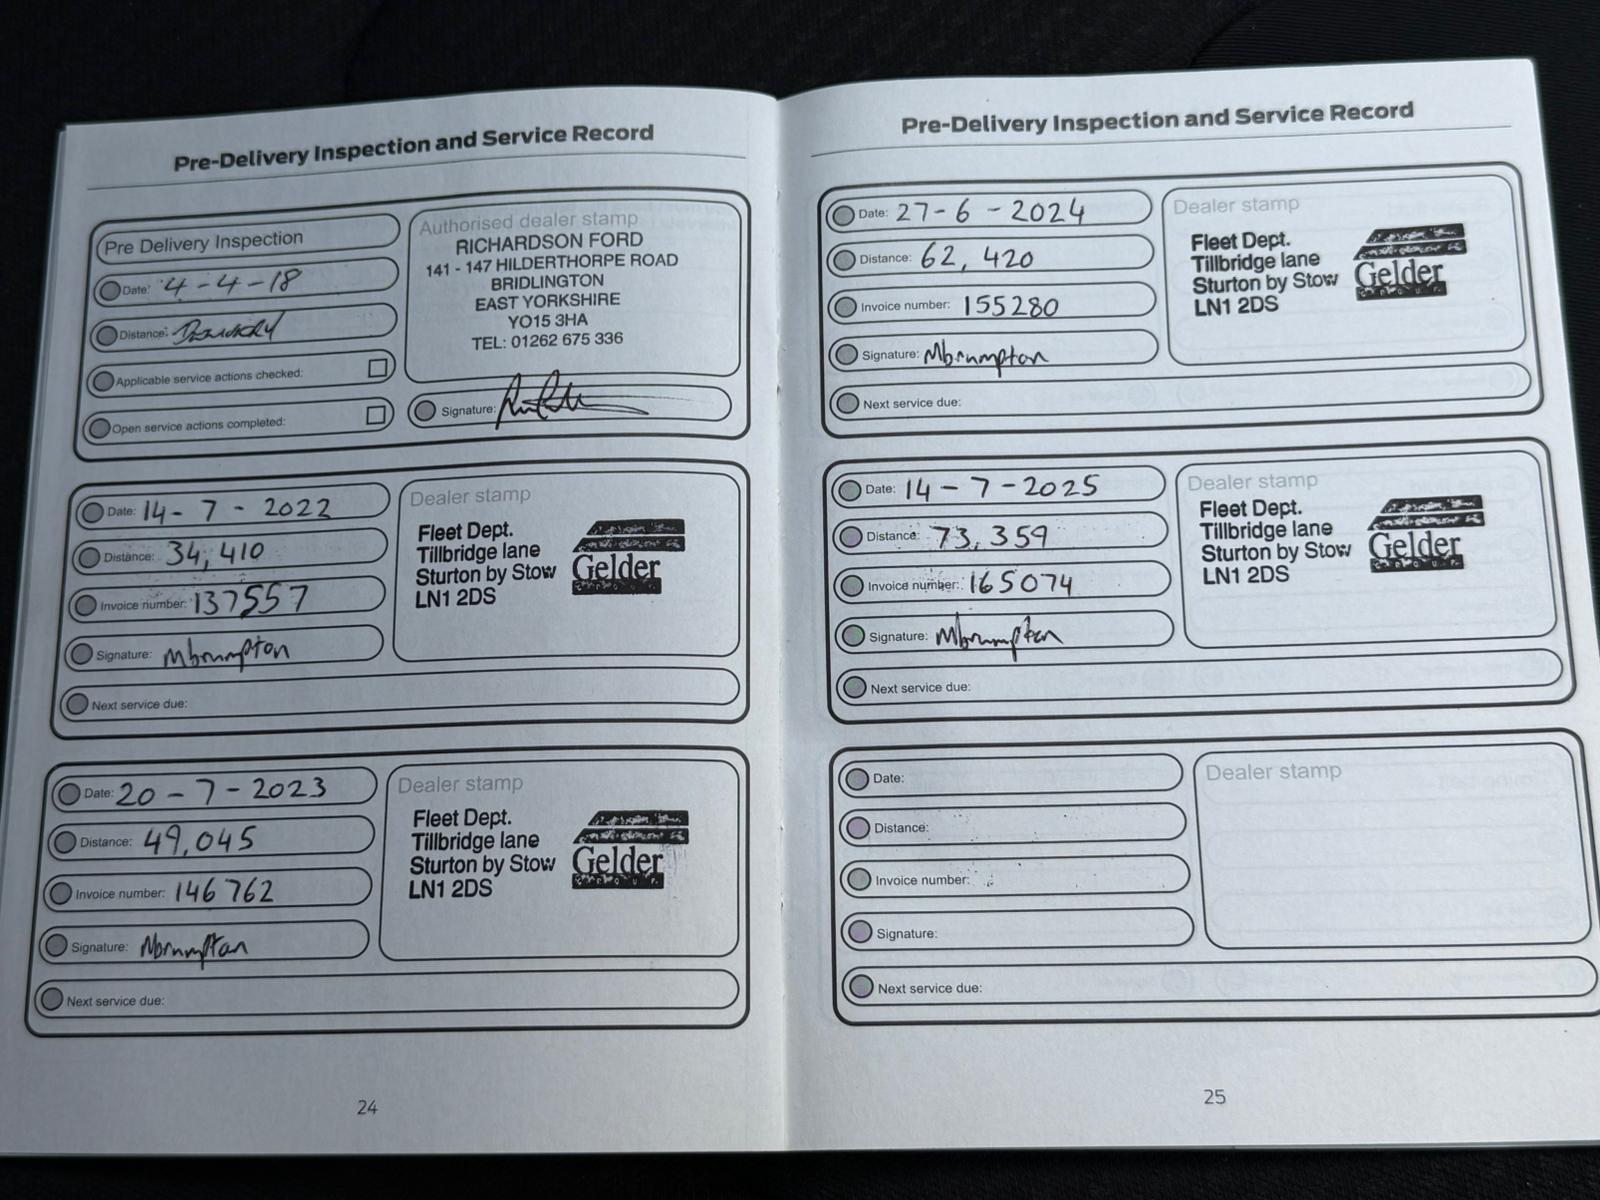 Pre-Delivery Inspection and Service Record
Pre Delivery Inspection
Date: 4-4-18
Distance:
Applicable service actions checked:
Open service actions completed:
Authorised dealer stamp
RICHARDSON FORD
141 - 147 HILDERTHORPE ROAD
BRIDLINGTON
EAST YORKSHIRE
YO15 3HA
TEL: 01262 675 336
Signature:
Date: 14-7-2022
Distance: 34,410
Invoice number: 137557
Signature: Mbrumpton
Next service due:
Dealer stamp
Fleet Dept.
Tillbridge lane
Sturton by Stow
LN1 2DS
Gelder
GROUP
Date: 20-7-2023
Distance: 49,045
Invoice number: 146762
Signature: Mbrumpton
Next service due:
Dealer stamp
Fleet Dept.
Tillbridge lane
Sturton by Stow
LN1 2DS
Gelder
GROUP
24
Pre-Delivery Inspection and Service Record
Date: 27-6-2024
Distance: 62,420
Invoice number: 155280
Signature: Mbrumpton
Next service due:
Dealer stamp
Fleet Dept.
Tillbridge lane
Sturton by Stow
LN1 2DS
Gelder
GROUP
Date: 14-7-2025
Distance: 73,359
Invoice number: 165074
Signature: Mbrumpton
Next service due:
Dealer stamp
Fleet Dept.
Tillbridge lane
Sturton by Stow
LN1 2DS
Gelder
GROUP
Date:
Distance:
Invoice number:
Signature:
Next service due:
Dealer stamp
25